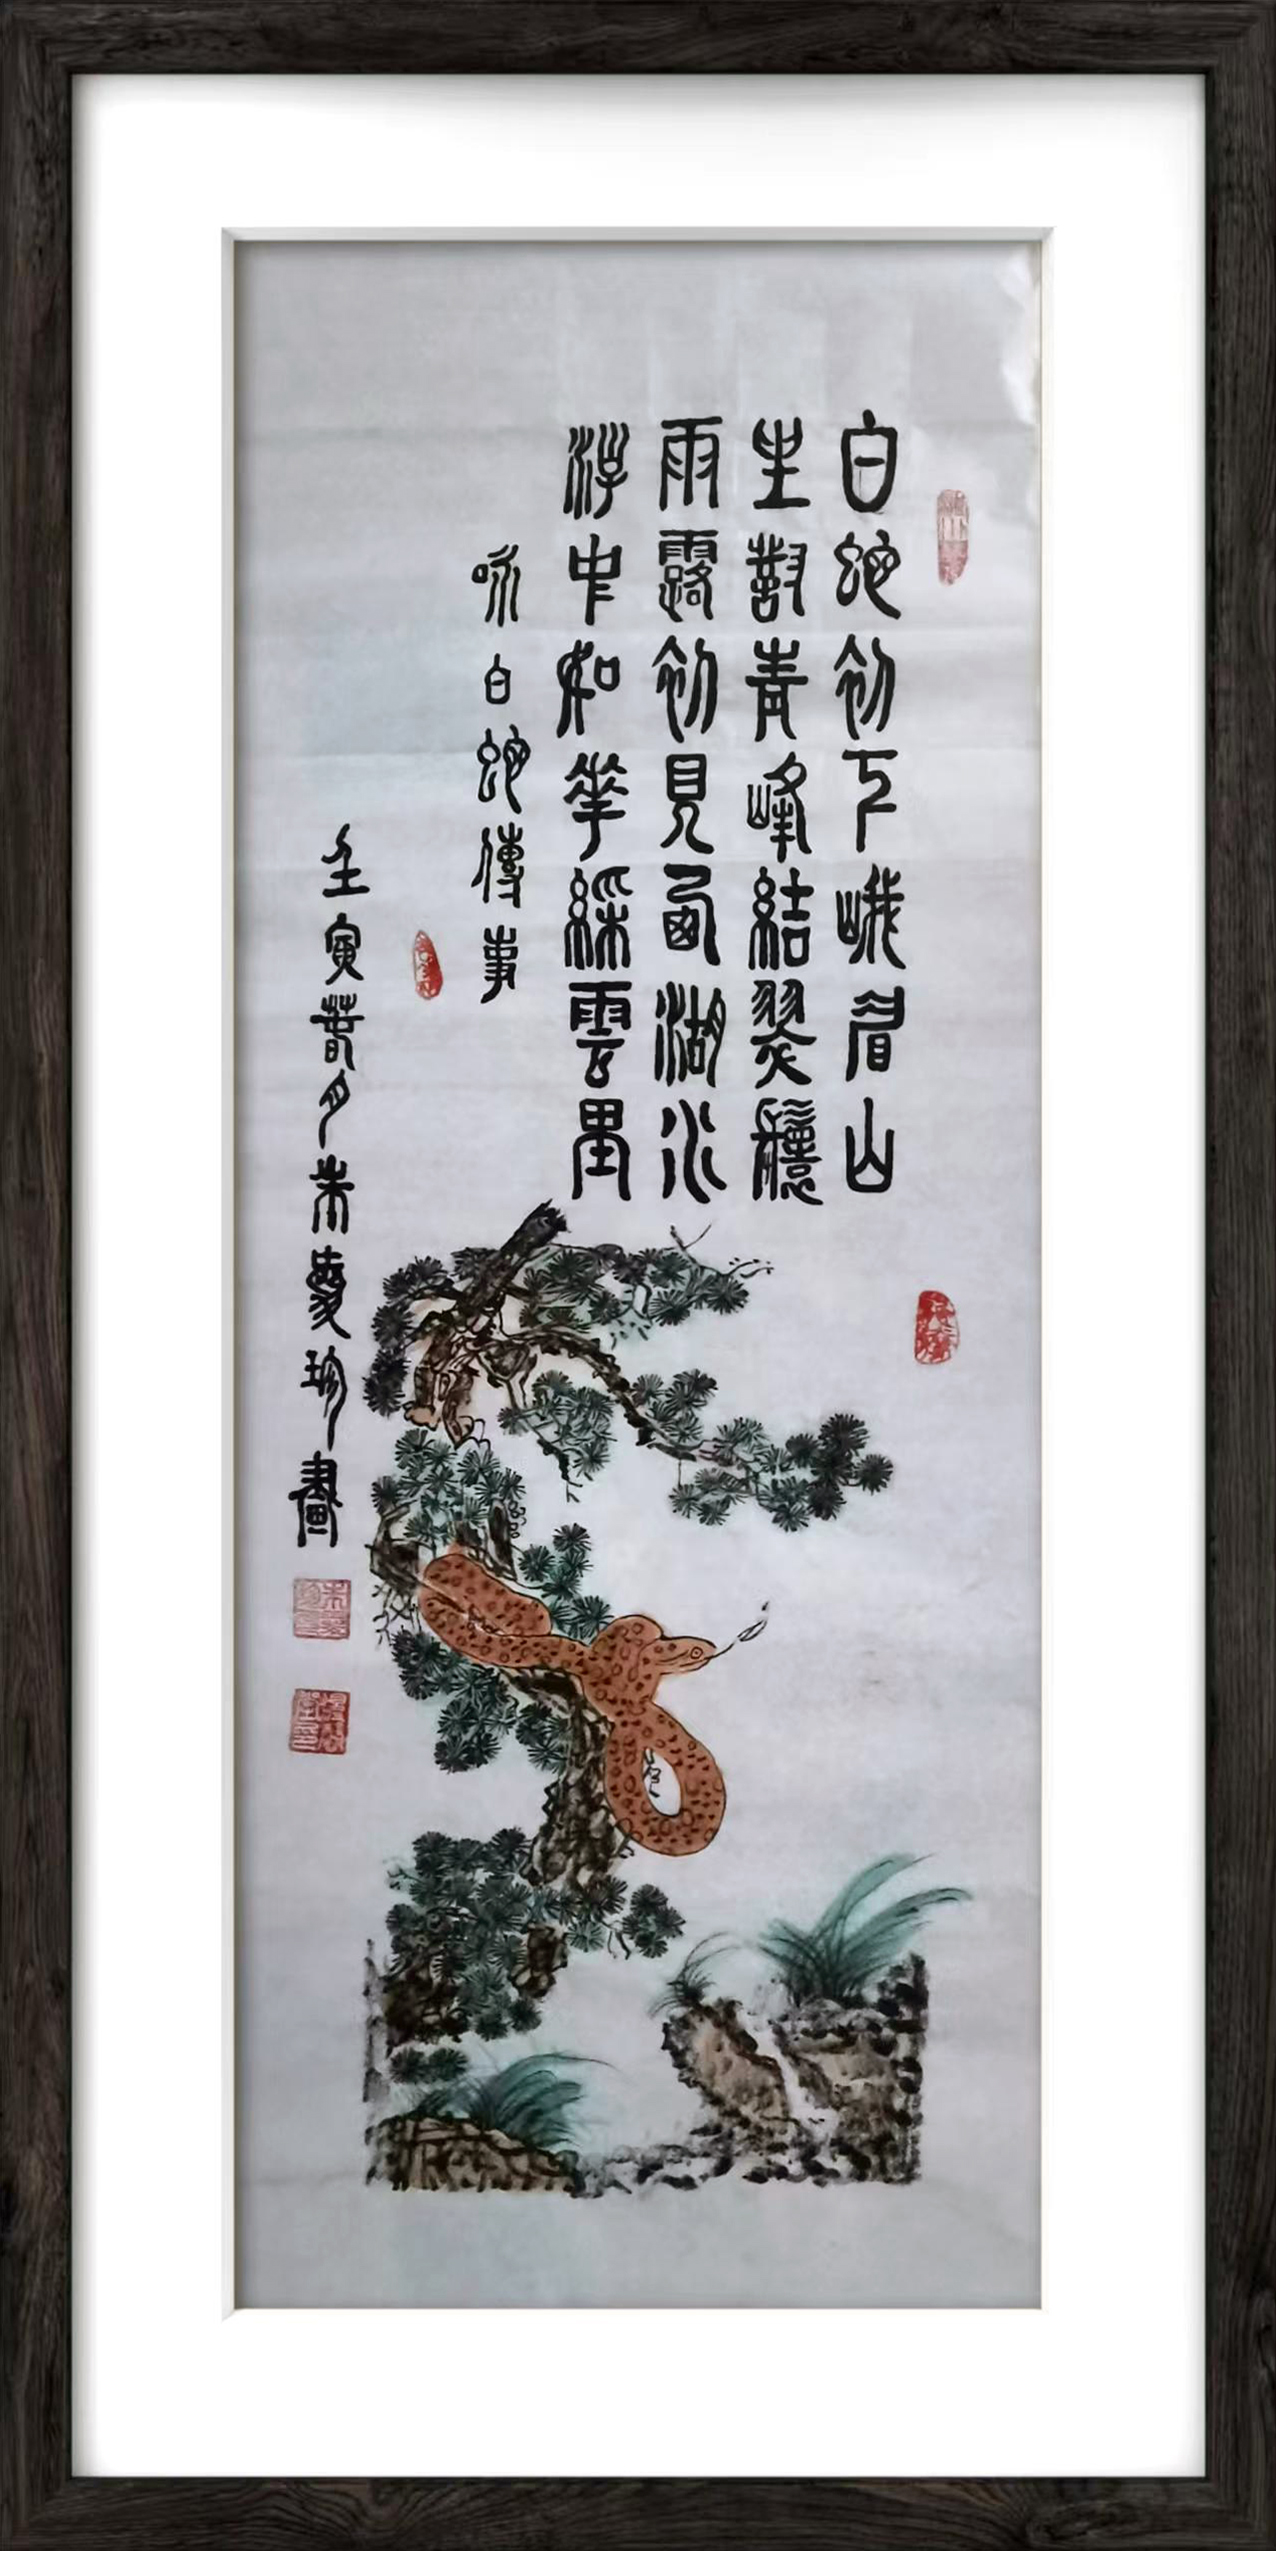 白蛇初下峨眉山
生對青峰結翠鬟
雨露初見西湖水
浮中如華綵雲里
咏白蛇傳事
壬寅春月朱慶珍畫